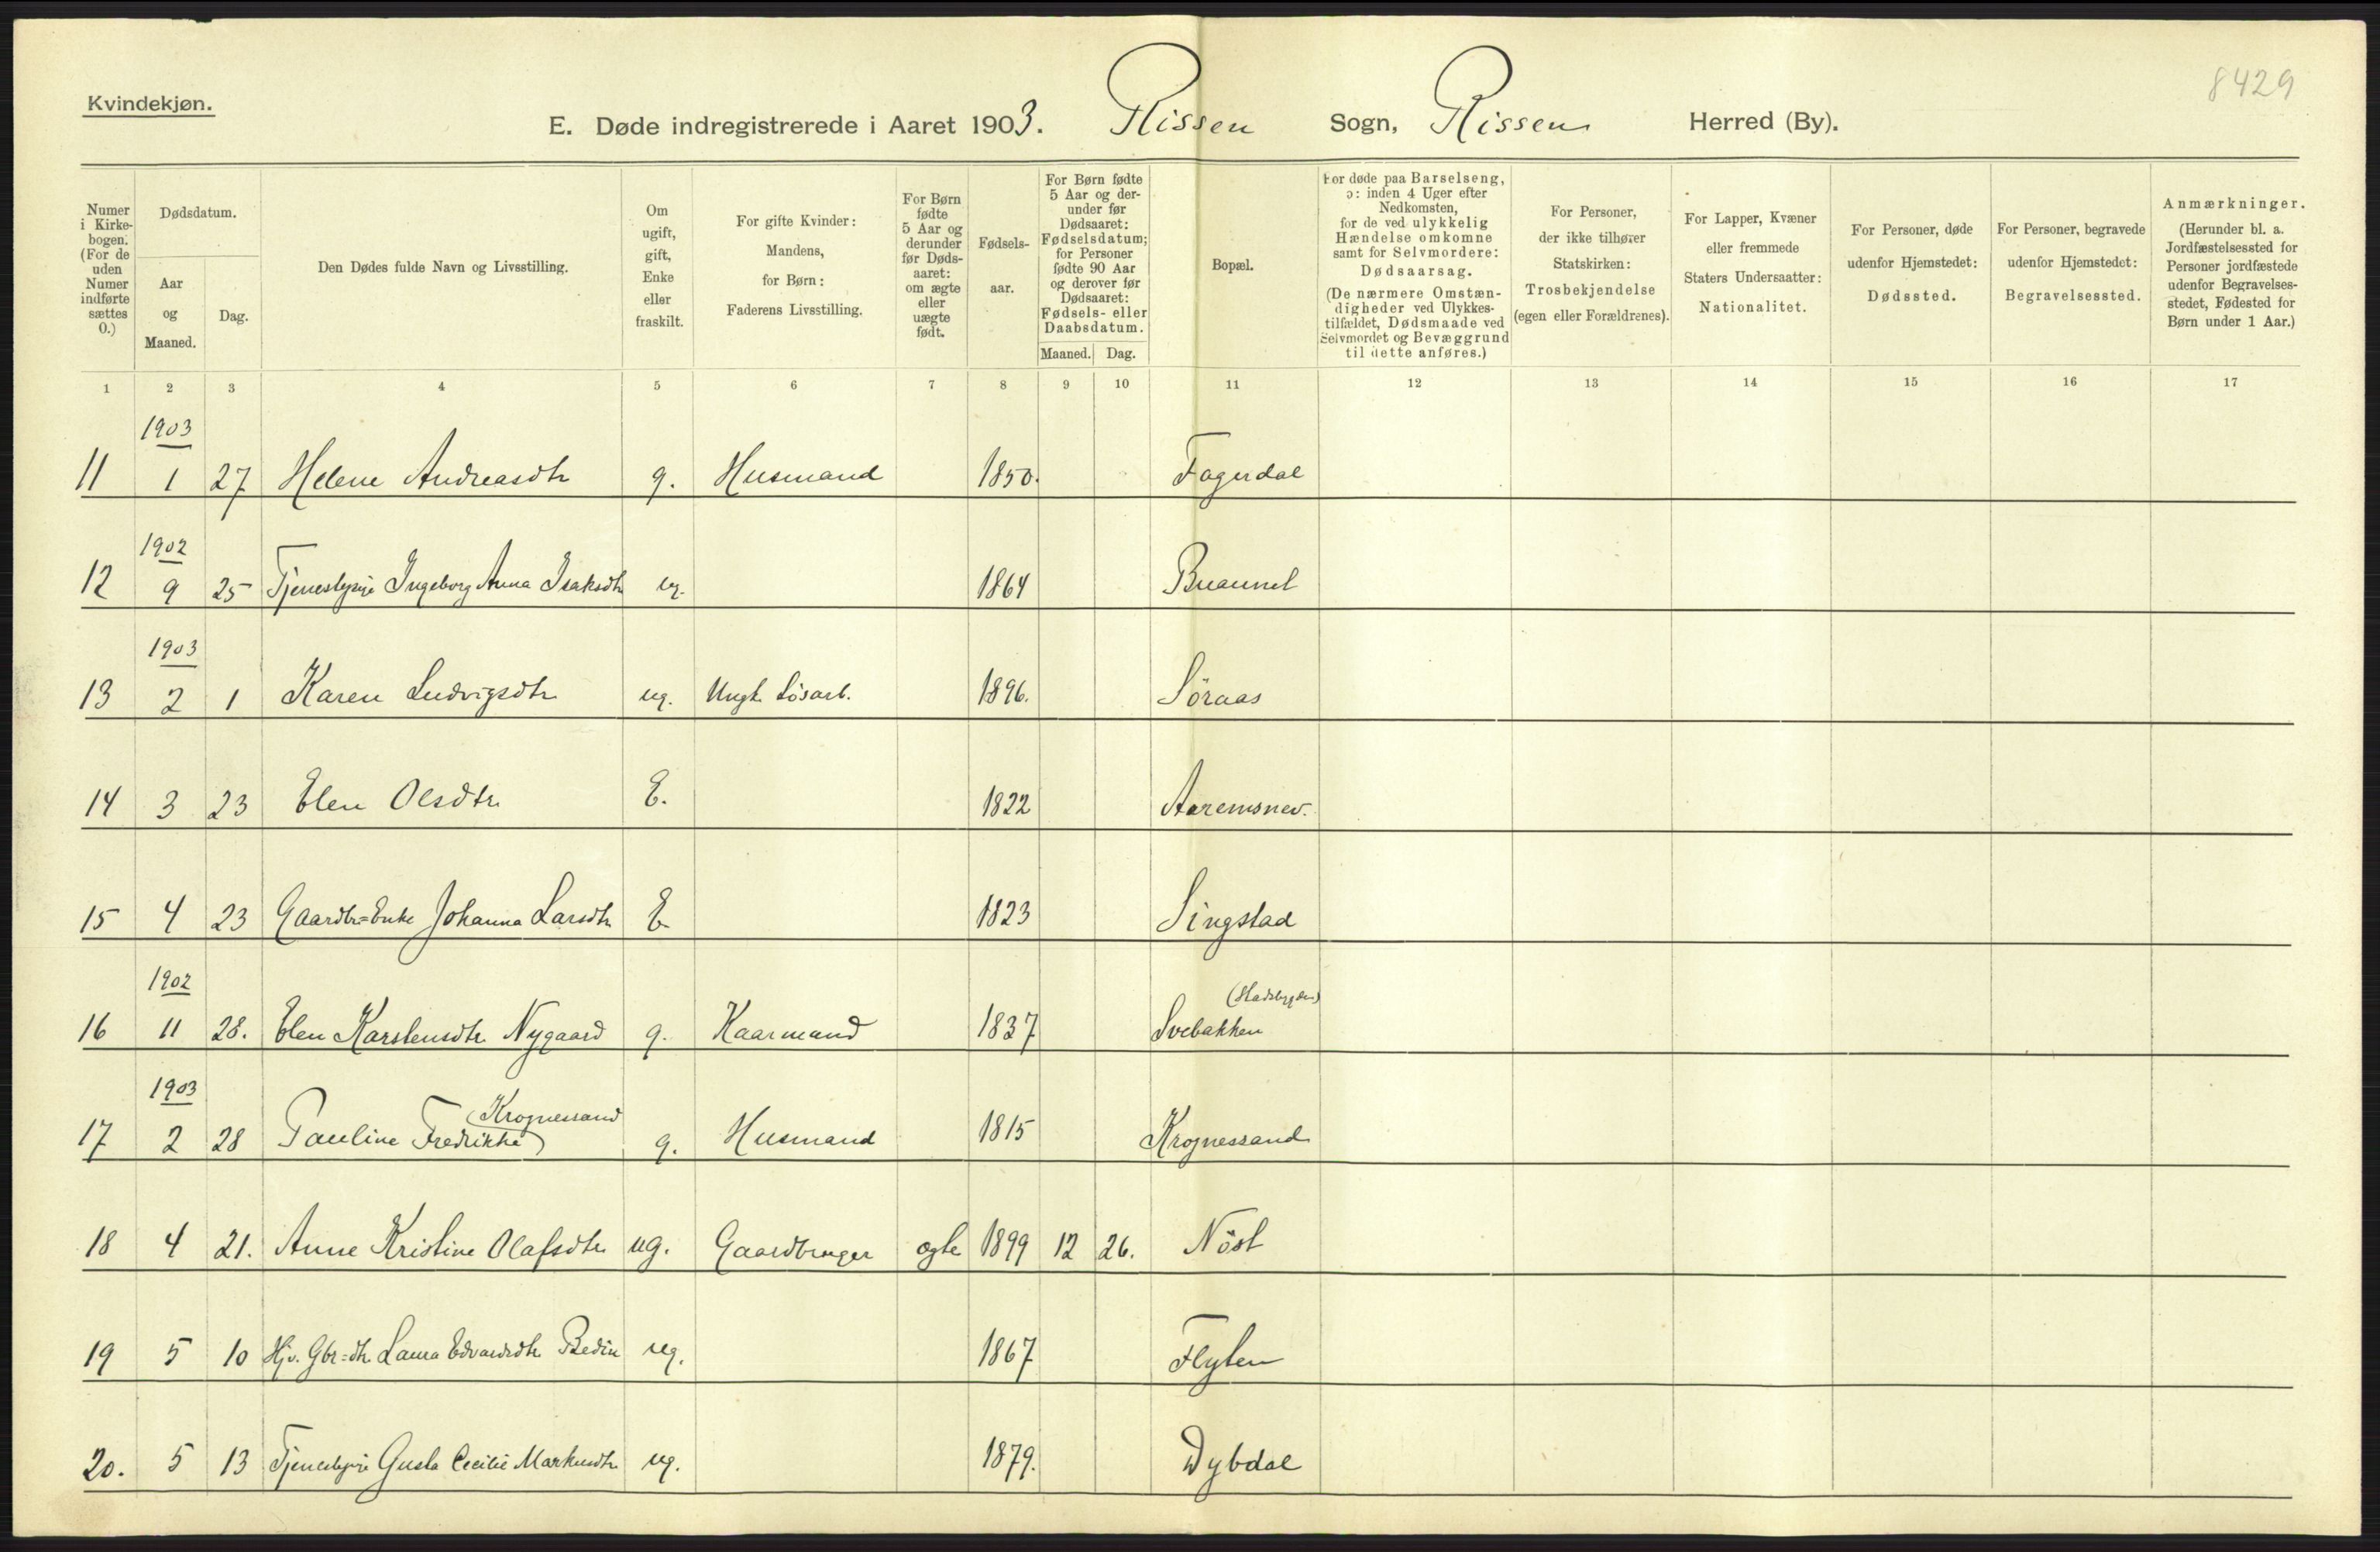 8429
Kvindekjøn.
E. Døde indregistrerede i Aaret 1903. Rissen Sogn, Rissen Herred (By).
Numer i Kirke-bogen. (For de uden Numer indførte sættes 0.)
Dødsdatum.
Aar og Maaned.
Dag.
Den Dødes fulde Navn og Livsstilling.
Om ugift, gift, Enke eller fraskilt.
For gifte Kvinder: Mandens, for Børn: Faderens Livsstilling.
For Børn fødte 5 Aar og derunder før Døds-aaret: om ægte eller uægte født.
Fødsels-aar.
For Børn fødte 5 Aar og der-under før Dødsaaret: Fødselsdatum; for Personer fødte 90 Aar og derover før Dødsaaret: Fødsels- eller Daabsdatum.
Maaned. Dag.
Bopæl.
For døde paa Barselseng, ɔ: inden 4 Uger efter Nedkomsten, for de ved ulykkelig Hændelse omkomne samt for Selvmordere: Dødsaarsag. (De nærmere Omstæn-digheder ved Ulykkes-tilfældet, Dødsmaade ved Selvmordet og Bevæggrund til dette anføres.)
For Personer, der ikke tilhører Statskirken: Trosbekjendelse (egen eller Forældrenes).
For Lapper, Kvæner eller fremmede Staters Undersaatter: Nationalitet.
For Personer, døde udenfor Hjemstedet: Dødssted.
For Personer, begravede udenfor Hjemstedet: Begravelsessted.
Anmærkninger. (Herunder bl. a. Jordfæstelsessted for Personer jordfæstede udenfor Begravelses-stedet, Fødested for Børn under 1 Aar.)
1 2 3 4 5 6 7 8 9 10 11 12 13 14 15 16 17
1903
11 1 27 Helene Andreasdtr g. Husmand 1850. Fagerdal
1902
12 9 25 Tjenestepige Ingeborg Anna Isaksdtr ug. 1864
1903
13 2 1 Karen Ludvigsdtr ug. Ungk. Løsarb. 1896. Söraas
14 3 23 Elen Olsdtr. E. 1822
15 4 23 Gaardbr=Enke Johanna Larsdtr E 1823 Singstad
1902
(Stadsbygden)
16 11 28. Elen Karstensdtr. Nygaard g. Kaarmand 1837 Svebakken
1903
(Krognessand
17 2 28 Pauline Fredrikke) g. Husmand 1815 Krognessand
18 4 21. Anne Kristine Olafsdtr ug. Gaardbruger ægte 1899 12 26. Nöst
19 5 10 Hjv. Gbr=dtr. Laura Edvardsdtr. ug. 1867 Flyten
20. 5 13 Tjenestepige Gusta Cecilie Markusdtr ug. 1879. Dybdal